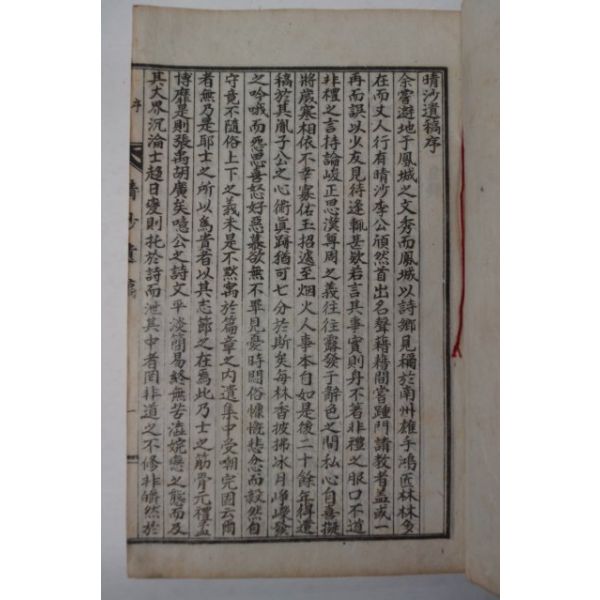 晴沙遺稿序
余嘗遊地于鳳城之文秀而鳳城以詩鄉見稱於南州雄手鴻匠林林多
在而丈人行有晴沙李公頎然首出名聲藉藉間嘗踵門請教者盖或一
再而誤以少友見待逢輒甚欵若言其事實則身不著非禮之服口不道
非禮之言持論峻正思漢尊周之義往往露發于辭色之間私心自喜擬
將歲寒相依不幸寡佑玉招遽至烟火人事本自如是後二十餘年得遺
稿於其胤子公之心術眞跡猶可七分於斯矣每林香披拂冰月崢嶸發
之吟哦而怨思喜怒好惡慕欲無不畢見憂時悶俗慷慨悲忿而毅然自
守竟不隨俗上下之義未是不默寓於篇章之內遺集中受嘲完固云爾
者無乃是耶士之所以爲貴者以其志節之在焉此乃士之筋骨元禮孟
博靡是則張禹胡廣矣噫公之詩文平淡簡易終無苦澁婉戀之態而及
其大界沉淪士趍日變則托於詩而泄其中者罔非道之不修非皭然於
序
晴沙遺稿
一